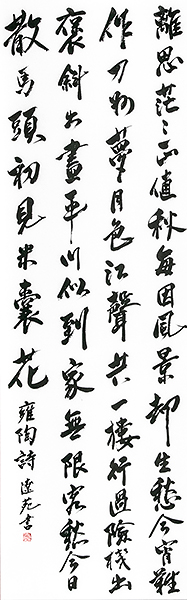 離思茫〻正值秋每因風景却生愁今宵難
作刀州夢月色江聲共一樓行過險棧出
褒斜出盡平川似到家無限客愁今日
散馬頭初見米囊花
雍陶詩 書